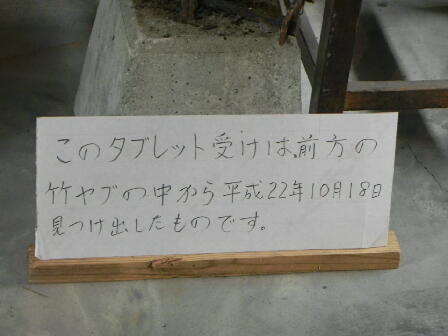 このタブレット受けは、前方の
竹ヤブの中から平成22年10月18日
見つけ出したものです。